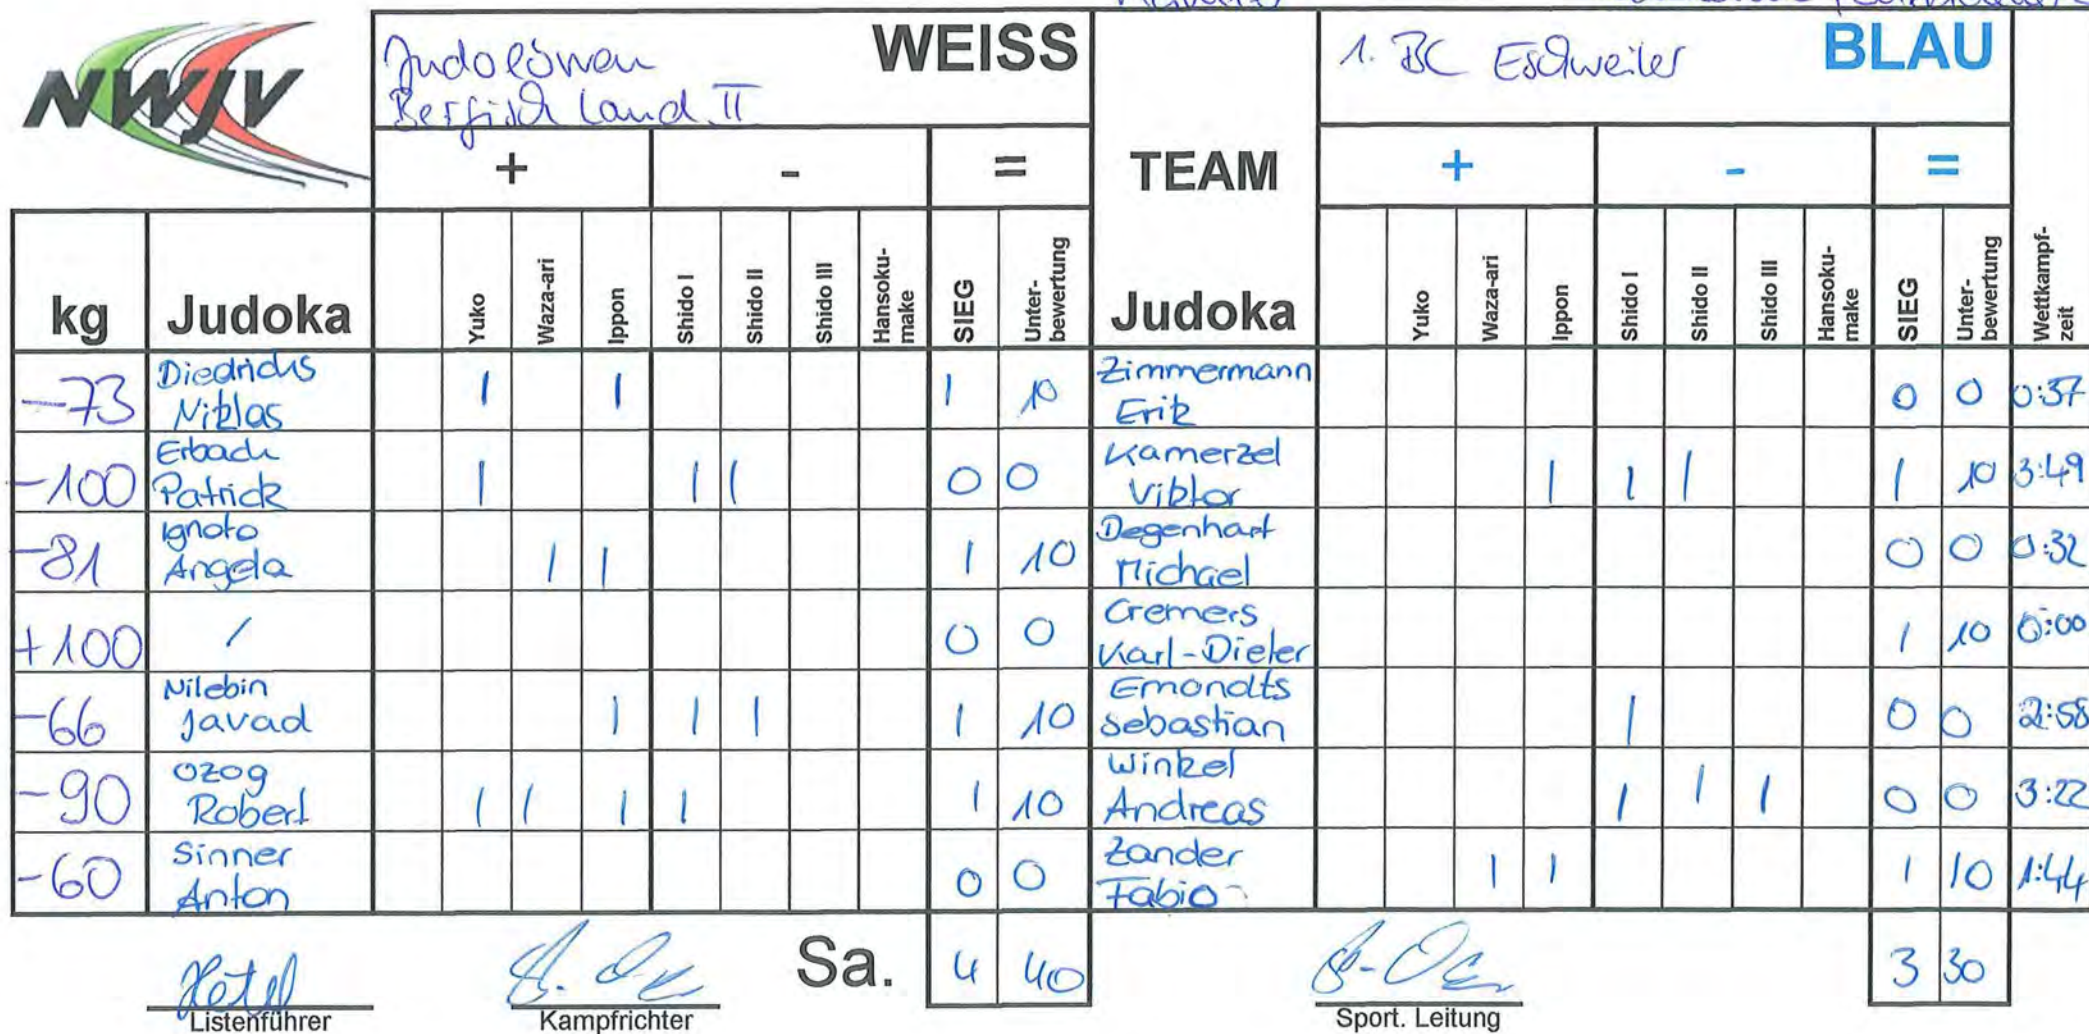 NWJV
Judolöwen
Bergisch Land II
WEISS
TEAM
1. BC Eschweiler
BLAU
+ - =
+ - =
kg Judoka Yuko Waza-ari Ippon Shido I Shido II Shido III Hansoku-make SIEG Unter-bewertung Judoka Yuko Waza-ari Ippon Shido I Shido II Shido III Hansoku-make SIEG Unter-bewertung Wettkampf-zeit
-73 Diedrichs Niklas | | 1 10 Zimmermann Erik 0 0 0:37
-100 Erbach Patrick | | | 0 0 Kamerzel Viktor | | | 1 10 3:49
-81 Ignoto Angela | | 1 10 Degenhart Michael 0 0 0:32
+100 / 0 0 Cremers Karl-Dieter 1 10 0:00
-66 Nilebin Javad | | | 1 10 Emondts Sebastian | 0 0 2:58
-90 Ozog Robert | | | | 1 10 Winkel Andreas | | | 0 0 3:22
-60 Sinner Anton 0 0 Zander Fabio | | 1 10 1:44
Sa. 4 40 3 30
Listenführer Kampfrichter Sport. Leitung